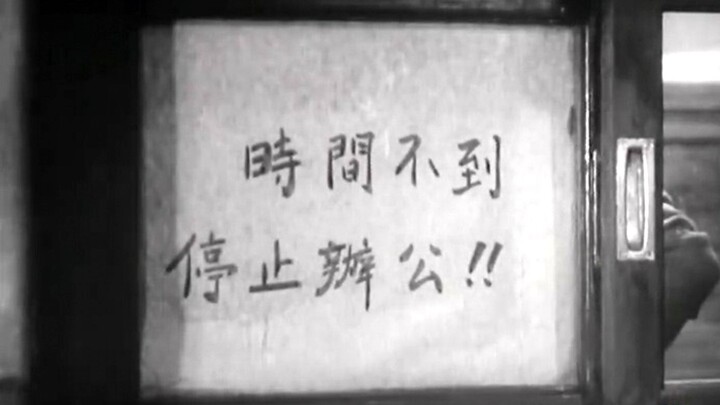 時間不到
停止辦公!!